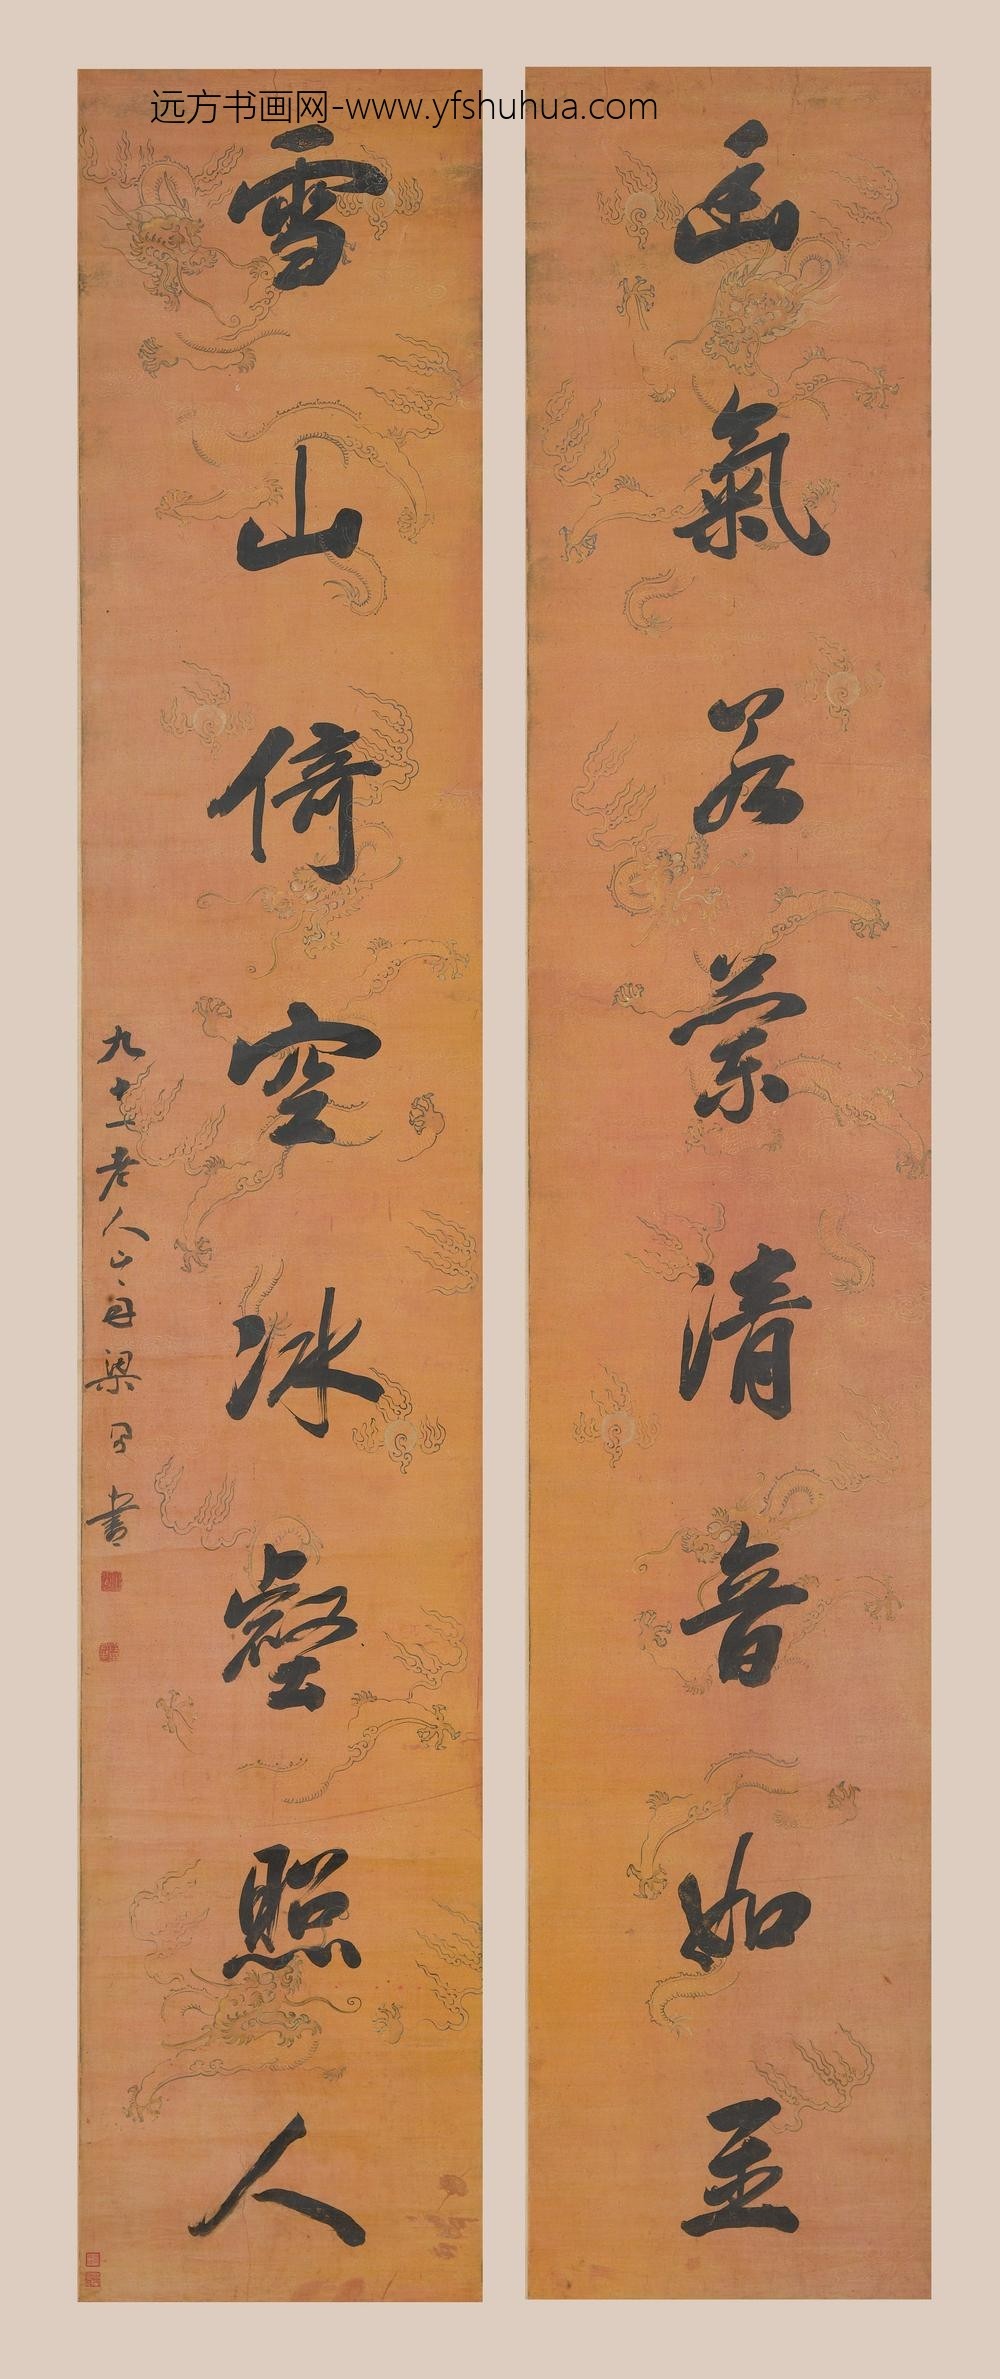 远方书画网-www.yfshuhua.com
幽氣若蘭清音如玉
雪山倚空冰壑照人
九十一老人山舟梁同書